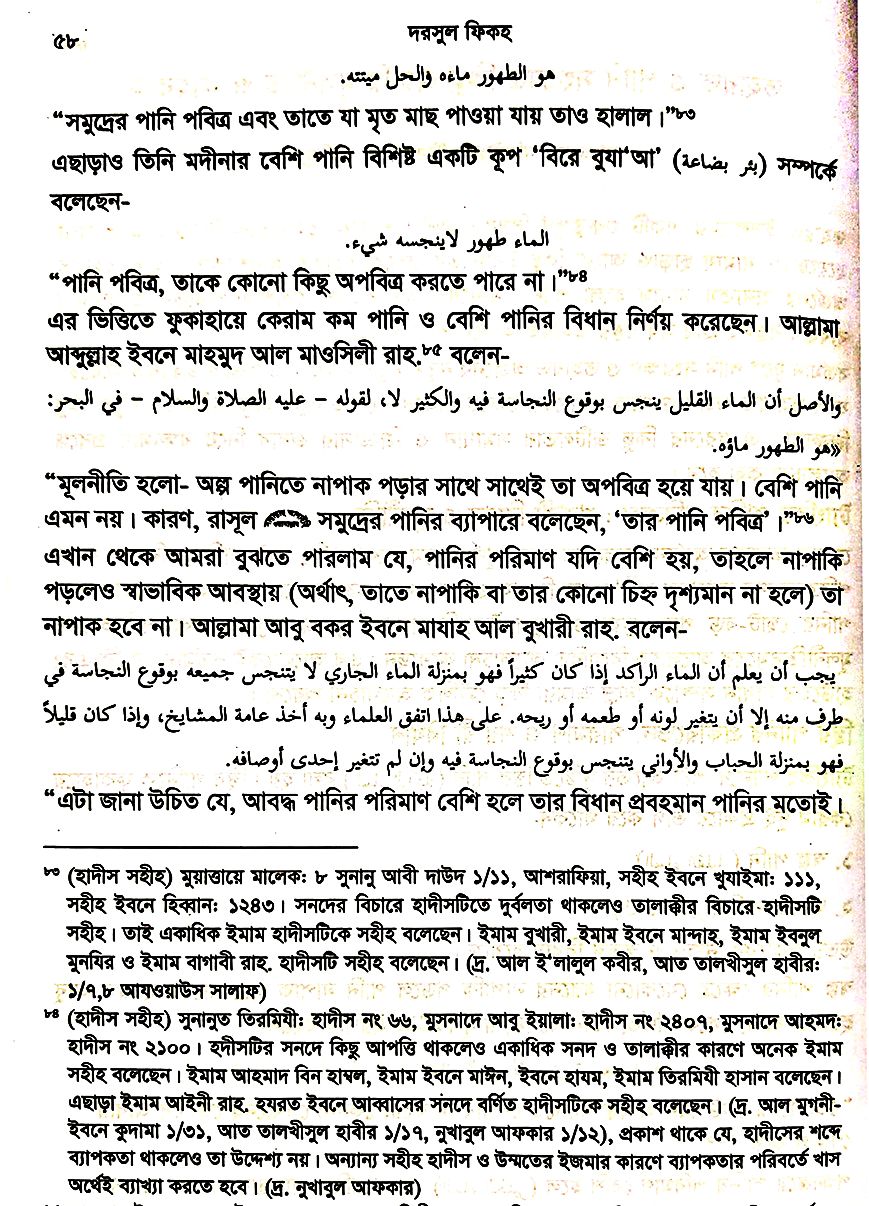 ৫৮
দরসুল ফিকহ
هو الطهور ماءه والحل ميتته.
“সমুদ্রের পানি পবিত্র এবং তাতে যা মৃত মাছ পাওয়া যায় তাও হালাল।”৮৩
এছাড়াও তিনি মদীনার বেশি পানি বিশিষ্ট একটি কূপ ‘বিরে বুযা‘আ’ (بئر بضاعة) সম্পর্কে
বলেছেন-
الماء طهور لاينجسه شيء.
“পানি পবিত্র, তাকে কোনো কিছু অপবিত্র করতে পারে না।”৮৪
এর ভিত্তিতে ফুকাহায়ে কেরাম কম পানি ও বেশি পানির বিধান নির্ণয় করেছেন। আল্লামা
আব্দুল্লাহ ইবনে মাহমুদ আল মাওসিলী রাহ.৮৫ বলেন-
والأصل أن الماء القليل ينجس بوقوع النجاسة فيه والكثير لا، لقوله - عليه الصلاة والسلام - في البحر:
«هو الطهور ماؤه.
“মূলনীতি হলো- অল্প পানিতে নাপাক পড়ার সাথে সাথেই তা অপবিত্র হয়ে যায়। বেশি পানি
এমন নয়। কারণ, রাসূল সমুদ্রের পানির ব্যাপারে বলেছেন, ‘তার পানি পবিত্র’।”৮৬
এখান থেকে আমরা বুঝতে পারলাম যে, পানির পরিমাণ যদি বেশি হয়, তাহলে নাপাকি
পড়লেও স্বাভাবিক আবস্থায় (অর্থাৎ, তাতে নাপাকি বা তার কোনো চিহ্ন দৃশ্যমান না হলে) তা
নাপাক হবে না। আল্লামা আবু বকর ইবনে মাযাহ আল বুখারী রাহ. বলেন-
يجب أن يعلم أن الماء الراكد إذا كان كثيراً فهو بمنزلة الماء الجاري لا يتنجس جميعه بوقوع النجاسة في
طرف منه إلا أن يتغير لونه أو طعمه أو ريحه. على هذا اتفق العلماء وبه أخذ عامة المشايخ، وإذا كان قليلاً
فهو بمنزلة الحباب والأواني يتنجس بوقوع النجاسة فيه وإن لم تتغير إحدى أوصافه.
“এটা জানা উচিত যে, আবদ্ধ পানির পরিমাণ বেশি হলে তার বিধান প্রবহমান পানির মতোই।
৮৩ (হাদীস সহীহ) মুয়াত্তায়ে মালেক: ৮ সুনানু আবী দাউদ ১/১১, আশরাফিয়া, সহীহ ইবনে খুযাইমা: ১১১,
সহীহ ইবনে হিব্বান: ১২৪৩। সনদের বিচারে হাদীসটিতে দুর্বলতা থাকলেও তালাক্কীর বিচারে হাদীসটি
সহীহ। তাই একাধিক ইমাম হাদীসটিকে সহীহ বলেছেন। ইমাম বুখারী, ইমাম ইবনে মান্দাহ, ইমাম ইবনুল
মুনযির ও ইমাম বাগাবী রাহ. হাদীসটি সহীহ বলেছেন। (দ্র. আল ই‘লালুল কবীর, আত তালখীসুল হাবীর:
১/৭,৮ আযওয়াউস সালাফ)
৮৪ (হাদীস সহীহ) সুনানুত তিরমিযী: হাদীস নং ৬৬, মুসনাদে আবু ইয়ালা: হাদীস নং ২৪০৭, মুসনাদে আহমদ:
হাদীস নং ২১০০। হদীসটির সনদে কিছু আপত্তি থাকলেও একাধিক সনদ ও তালাক্কীর কারণে অনেক ইমাম
সহীহ বলেছেন। ইমাম আহমাদ বিন হাম্বল, ইমাম ইবনে মাঈন, ইবনে হাযম, ইমাম তিরমিযী হাসান বলেছেন।
এছাড়া ইমাম আইনী রাহ. হযরত ইবনে আব্বাসের সনদে বর্ণিত হাদীসটিকে সহীহ বলেছেন। (দ্র. আল মুগনী-
ইবনে কুদামা ১/৩১, আত তালখীসুল হাবীর ১/১৭, নুখাবুল আফকার ১/১২), প্রকাশ থাকে যে, হাদীসের শব্দে
ব্যাপকতা থাকলেও তা উদ্দেশ্য নয়। অন্যান্য সহীহ হাদীস ও উম্মতের ইজমার কারণে ব্যাপকতার পরিবর্তে খাস
অর্থেই ব্যাখ্যা করতে হবে। (দ্র. নুখাবুল আফকার)